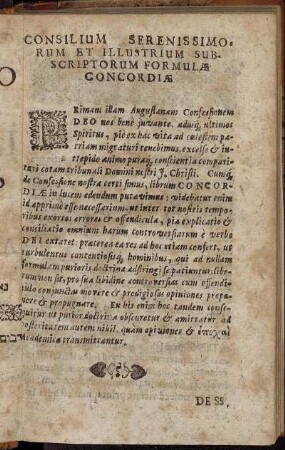 CONSILIUM SERENISSIMO-
RUM ET ILLUSTRIUM SUB-
SCRIPTORUM FORMULÆ
CONCORDIÆ
PRimam illam Augustanam Confessionem
DEO nos bene juvante, aduſq; ultimos
Spiritus, piè ex hac vita ad cœleſtem pa-
triam migraturi tenebimus, excelſo & in-
trepido animo puraq; conſcientia comparituri
coram tribunali Domini nostri J. Chriſti. Cumq;
de Confeſſione noſtra certi ſimus, librum CONCOR-
DIÆ in lucem edendum putavimus: videbatur enim
id apprimè eſſe neceſſarium, ut inter tot noſtris tempo-
ribus exortos errores & offendicula, pia explicatio &
conciliatio omnium harum controverſiarum è verbo
DEI extaret: præterea ea res ad hoc etiam confert, ut
turbulentus contentioſisq; hominibus, qui ad nullam
formulam purioris doctrinæ adſtringi ſe patiuntur, libe-
rum non ſit, pro ſua libidine controverſias cum offendi-
culo conjunctas movere & prodigioſas opiniones propo-
nere & propugnare. Ex his enim hoc tandem conſe-
quitur, ut purior doctrina obſcuretur & amittatur, ad
poſteritatem autem nihil, quàm opiniones &
Academicæ transmittantur.
DE SS.